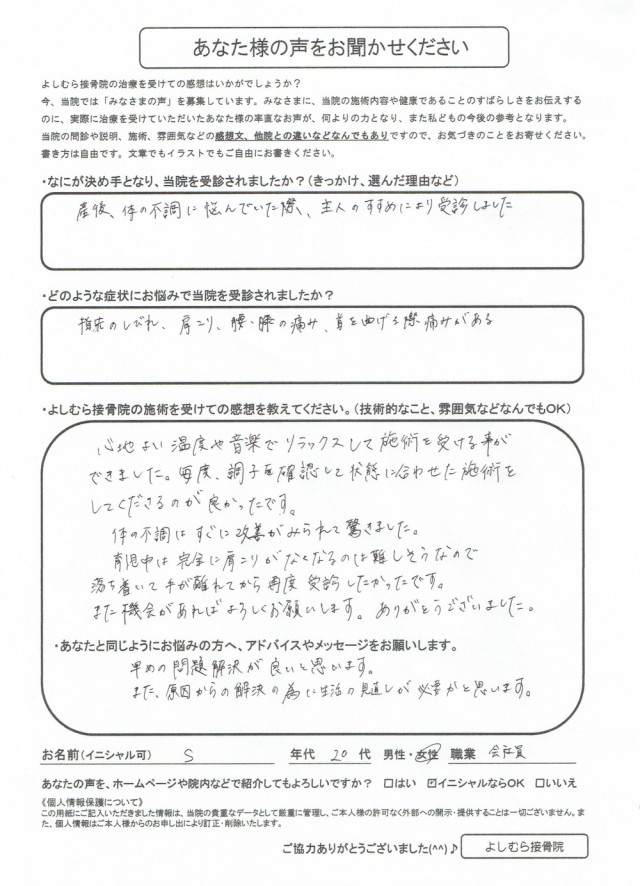 あなた様の声をお聞かせください
よしむら接骨院の治療を受けての感想はいかがでしょうか？
今、当院では「みなさまの声」を募集しています。みなさまに、当院の施術内容や健康であることのすばらしさをお伝えする
のに、実際に治療を受けていただいたあなた様の率直なお声が、何よりの力となり、また私どもの今後の参考となります。
当院の問診や説明、施術、雰囲気などの感想文、他院との違いなどなんでもありですので、お気づきのことをお寄せください。
書き方は自由です。文章でもイラストでもご自由にお書きください。
・なにが決め手となり、当院を受診されましたか？（きっかけ、選んだ理由など）
産後、体の不調に悩んでいた際、主人のすすめにより受診しました
・どのような症状にお悩みで当院を受診されましたか？
指先のしびれ、肩こり、腰・膝の痛み、首を曲げる際痛みがある
・よしむら接骨院の施術を受けての感想を教えてください。（技術的なこと、雰囲気などなんでもOK）
心地よい温度や音楽でリラックスして施術を受ける事が
できました。毎度、調子を確認して状態に合わせた施術を
してくださるのが良かったです。
体の不調はすぐに改善がみられて驚きました。
育児中は完全に肩こりがなくなるのは難しそうなので
落ち着いて手が離れてから再度受診したかったです。
また機会があればよろしくお願いします。ありがとうございました。
・あなたと同じようにお悩みの方へ、アドバイスやメッセージをお願いします。
早めの問題解決が良いと思います。
また、原因からの解決の為に生活の見直しが必要かと思います。
お名前（イニシャル可） S 年代 20 代 男性・女性 職業 会社員
あなたの声を、ホームページや院内などで紹介してもよろしいですか？ □はい ☑イニシャルならOK □いいえ
《個人情報保護について》
この用紙にご記入いただきました情報は、当院の貴重なデータとして厳重に管理し、ご本人様の許可なく外部への開示・提供することは一切ございません。ま
た、個人情報はご本人様からのお申し出により訂正・削除いたします。
ご協力ありがとうございました(^^)♪ よしむら接骨院